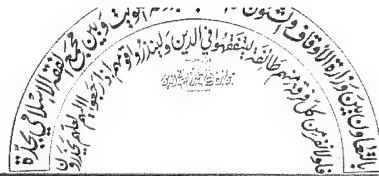 بالتعاون بين وزارة الأوقاف والشئون الكويت وبين مجمع الفقه الإسلامي بجدة
فلولا نفر من كل فرقة منهم طائفة ليتفقهوا في الدين ولينذروا قومهم إذا رجعوا إليهم لعلهم يحذرون